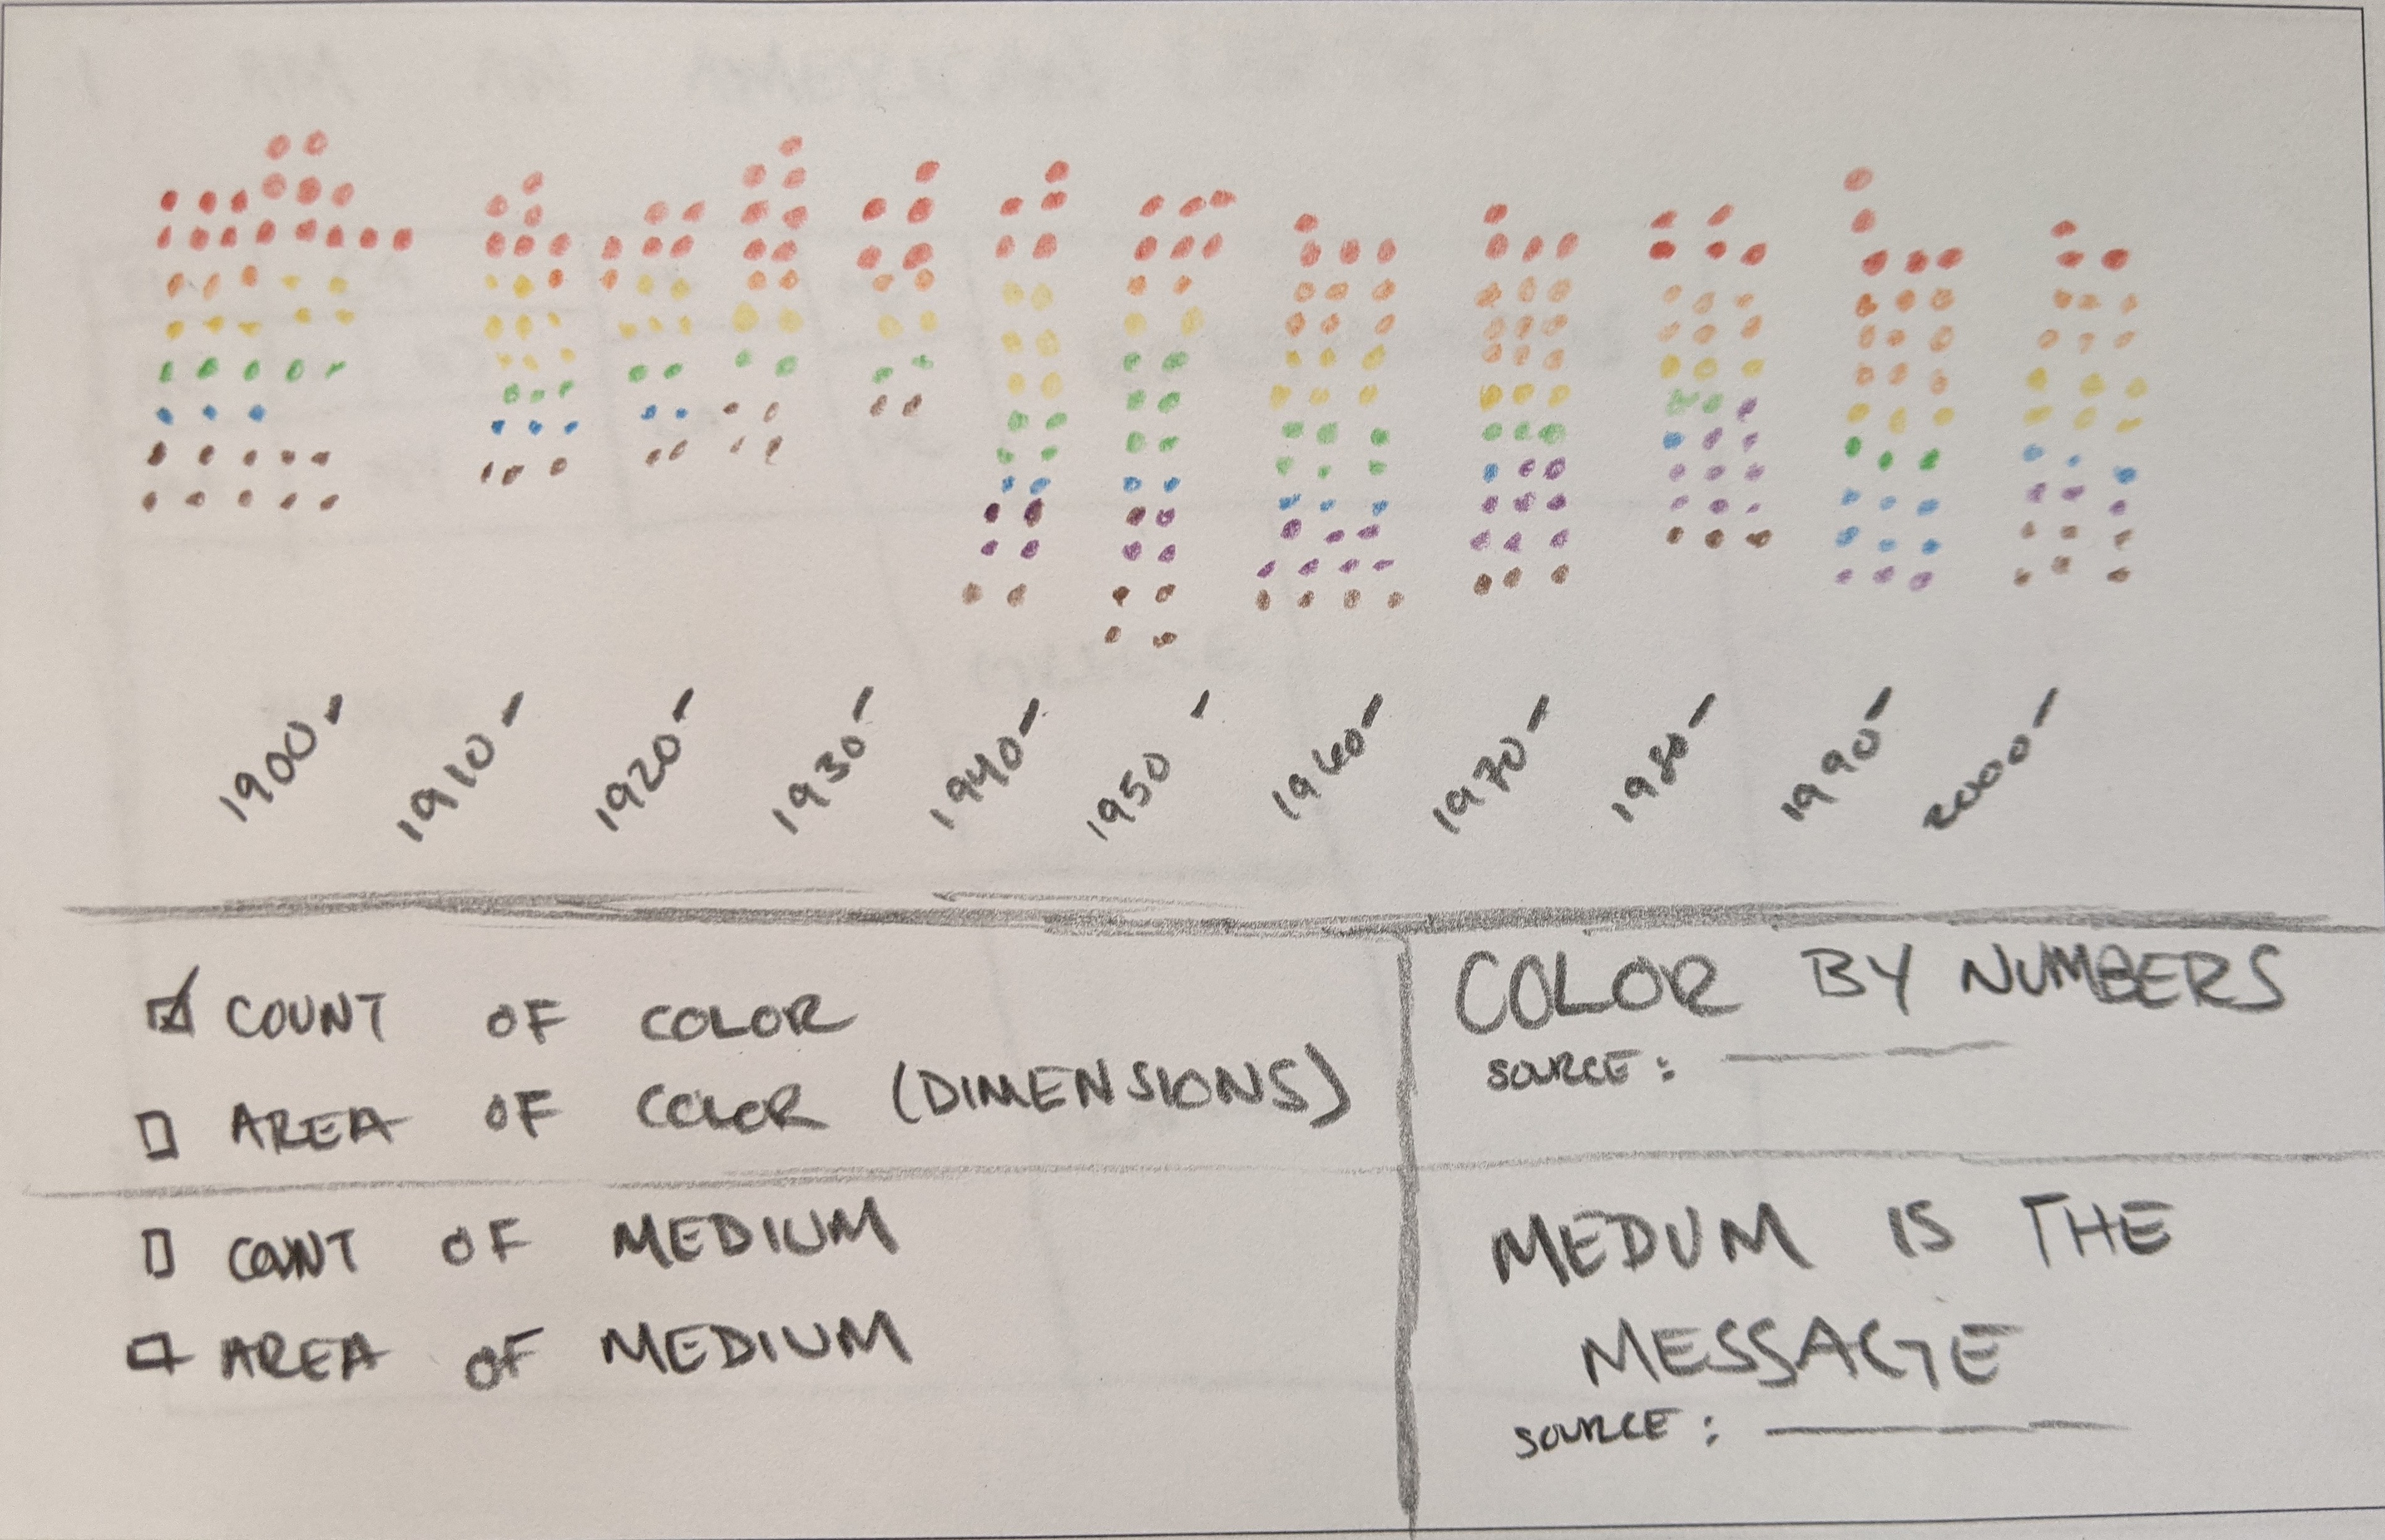 1900-
1910-
1920-
1930-
1940-
1950 -
1960-
1970-
1980-
1990-
2000-
COUNT OF COLOR
AREA OF COLOR (DIMENSIONS)
COUNT OF MEDIUM
AREA OF MEDIUM
COLOR BY NUMBERS
SOURCE:
MEDUM IS THE
MESSAGE
SOURCE: